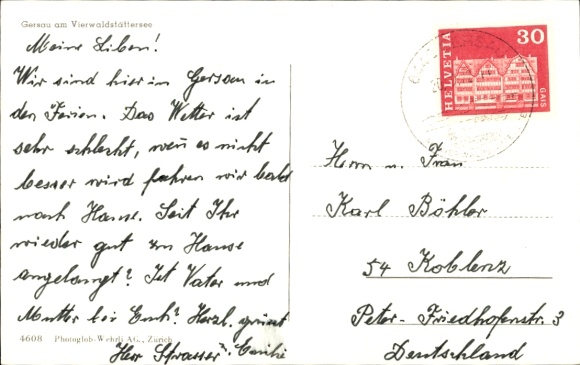 Gersau am Vierwaldstättersee
Meine Lieben!
Wir sind hier in Gersau in
den Ferien. Das Wetter ist
sehr schlecht, wen̄ es nicht
besser wird fahren wir bald
nach Hause. Seit Ihr
wieder gut zu Hause
angelangt? Ist Vater und
Mutter bei Euch? Herzl. grüsst
Herr Strasser u.
4608 Photoglob-Wehrli AG., Zürich
HELVETIA 30
GAIS
Herrn u. Frau
Karl Böhler
54 Koblenz
Peter-Friedhofenstr. 3
Deutschland